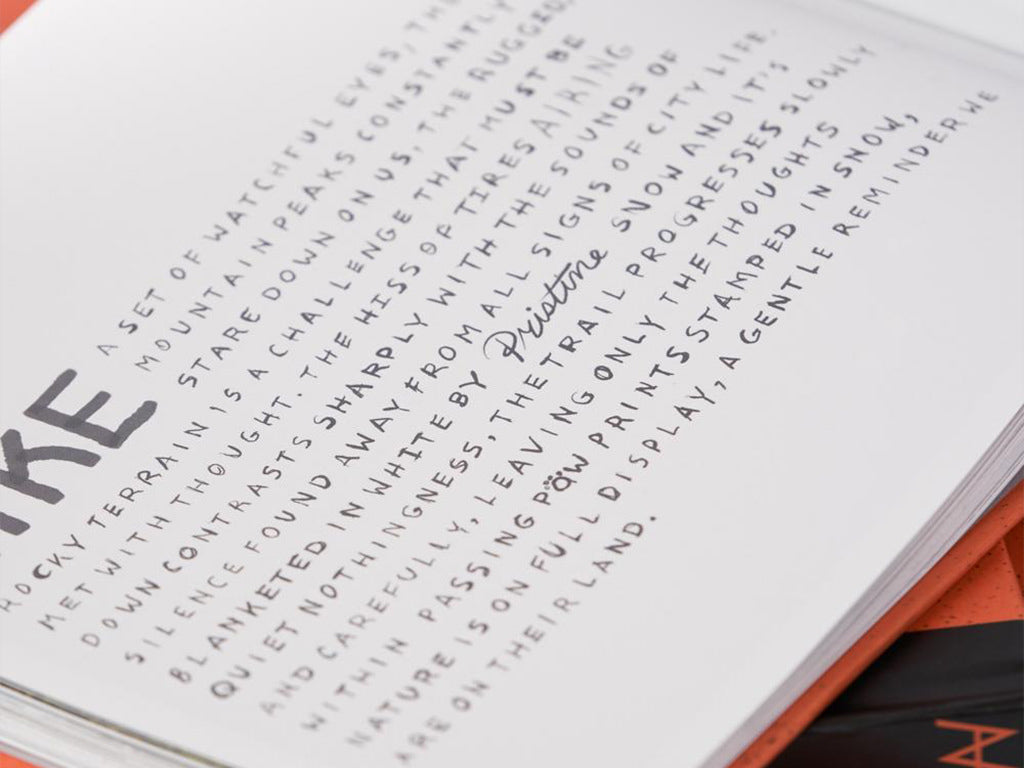 A SET OF WATCHFUL EYES, THE
MOUNTAIN PEAKS CONSTANTLY
STARE DOWN ON US, THE RUGGED,
ROCKY TERRAIN IS A CHALLENGE THAT MUST BE
MET WITH THOUGHT. THE HISS OF TIRES AIRING
DOWN CONTRASTS SHARPLY WITH THE SOUNDS OF
SILENCE FOUND AWAY FROM ALL SIGNS OF CITY LIFE.
BLANKETED IN WHITE BY Pristine SNOW AND IT'S
QUIET NOTHINGNESS, THE TRAIL PROGRESSES SLOWLY
AND CAREFULLY, LEAVING ONLY THE THOUGHTS
WITHIN PASSING PAW PRINTS STAMPED IN SNOW,
NATURE IS ON FULL DISPLAY, A GENTLE REMINDER WE
ARE ON THEIR LAND.